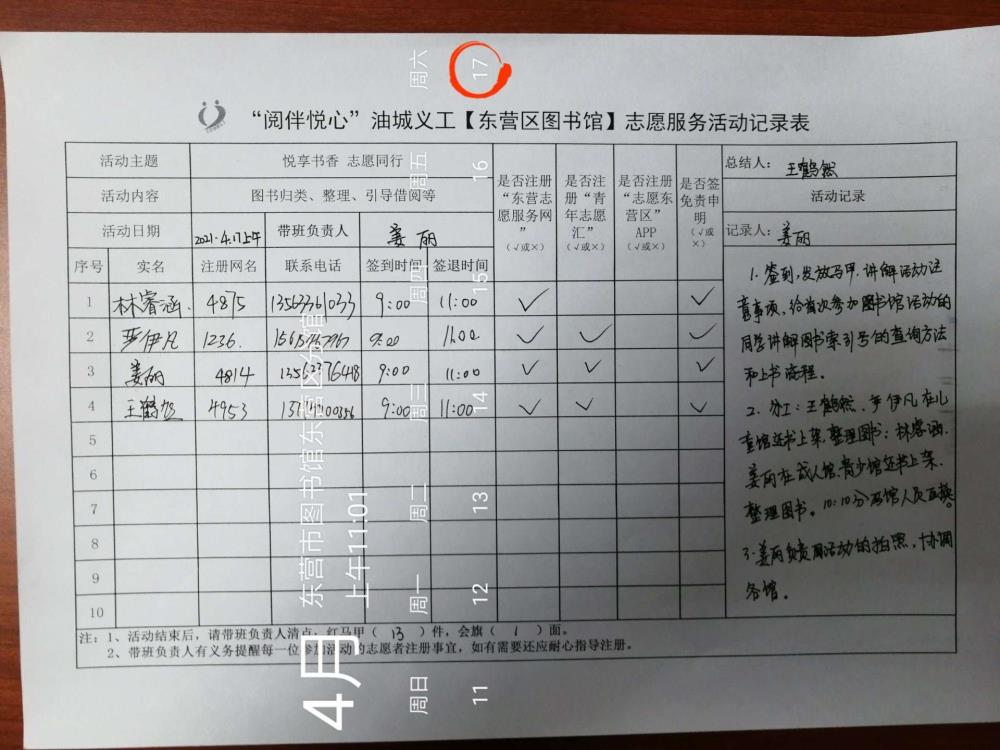 “阅伴悦心”油城义工【东营区图书馆】志愿服务活动记录表
活动主题 悦享书香 志愿同行
活动内容 图书归类、整理、引导借阅等
活动日期 2021.4.17上午 带班负责人 姜丽
是否注册“东营志愿服务网”（√或×）
是否注册“青年志愿汇”（√或×）
是否注册“志愿东营区”APP（√或×）
是否签免责申明（√或×）
总结人： 王鹤然
活动记录
记录人： 姜丽
序号 实名 注册网名 联系电话 签到时间 签退时间
1 林睿涵 4875 13563361033 9:00 11:00 √ √
2 严伊凡 1236. 9:00 11:00 √ √ √
3 姜丽 4814 9:00 11:00 √ √ √
4 王鹤然 4953 9:00 11:00 √ √ √
5
6
7
8
9
10
1.签到，发放马甲，讲解活动注
意事项，给首次参加图书馆活动的
同学讲解图书索引号的查询方法
和上书流程。
2.分工：王鹤然、严伊凡在儿
童馆还书上架，整理图书；林睿涵、
姜丽在成人馆、青少馆还书上架、
整理图书。10:10分两馆人员互换。
3.姜丽负责活动的拍照，协调
各馆。
注：1、活动结束后，请带班负责人清点：红马甲（13）件，会旗（1）面。
2、带班负责人有义务提醒每一位参加活动的志愿者注册事宜，如有需要还应耐心指导注册。
4月
东营市图书馆东营区分馆
上午11:01
周日 周一 周二 周三 周四 周五 周六
11 12 13 14 15 16 17